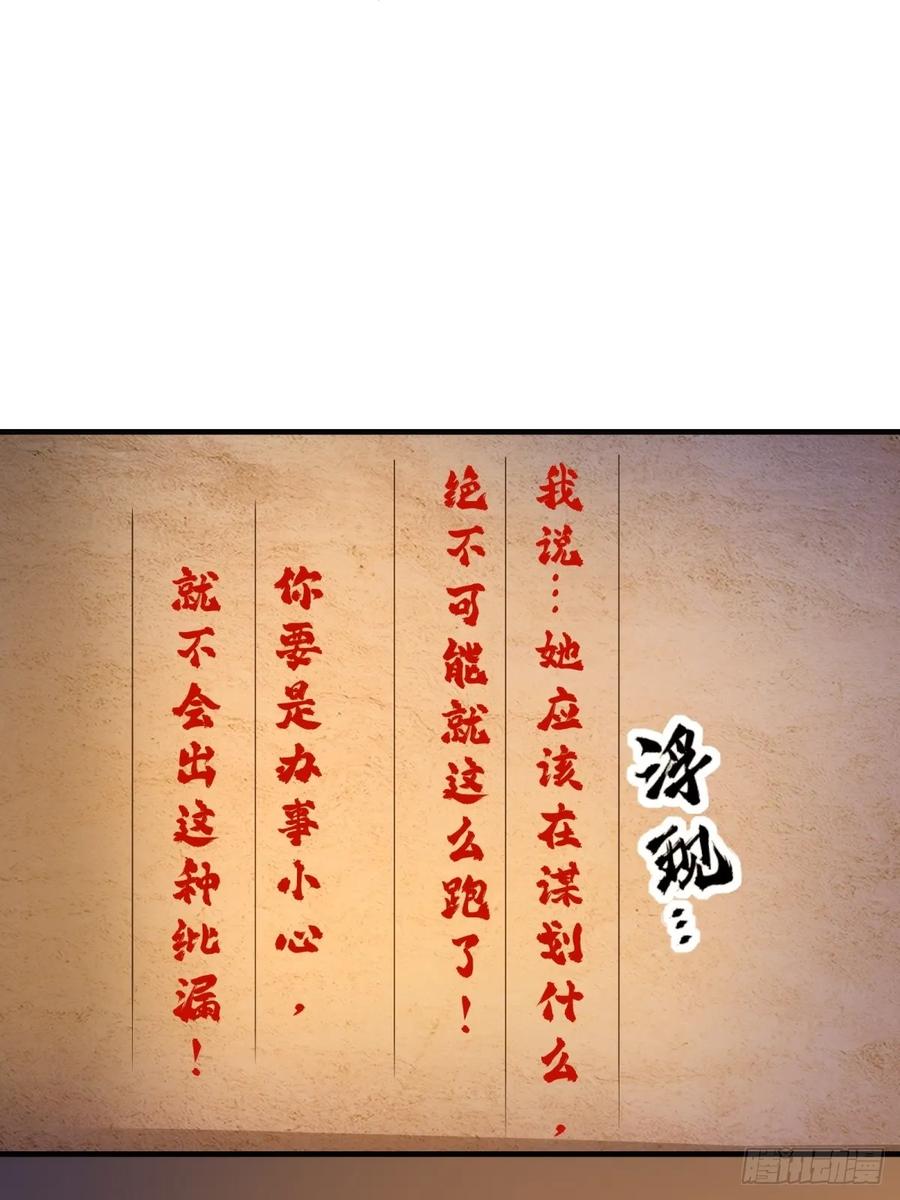 浮现…
我说…她应该在谋划什么，
绝不可能就这么跑了！
你要是办事小心，
就不会出这种纰漏！
腾讯动漫